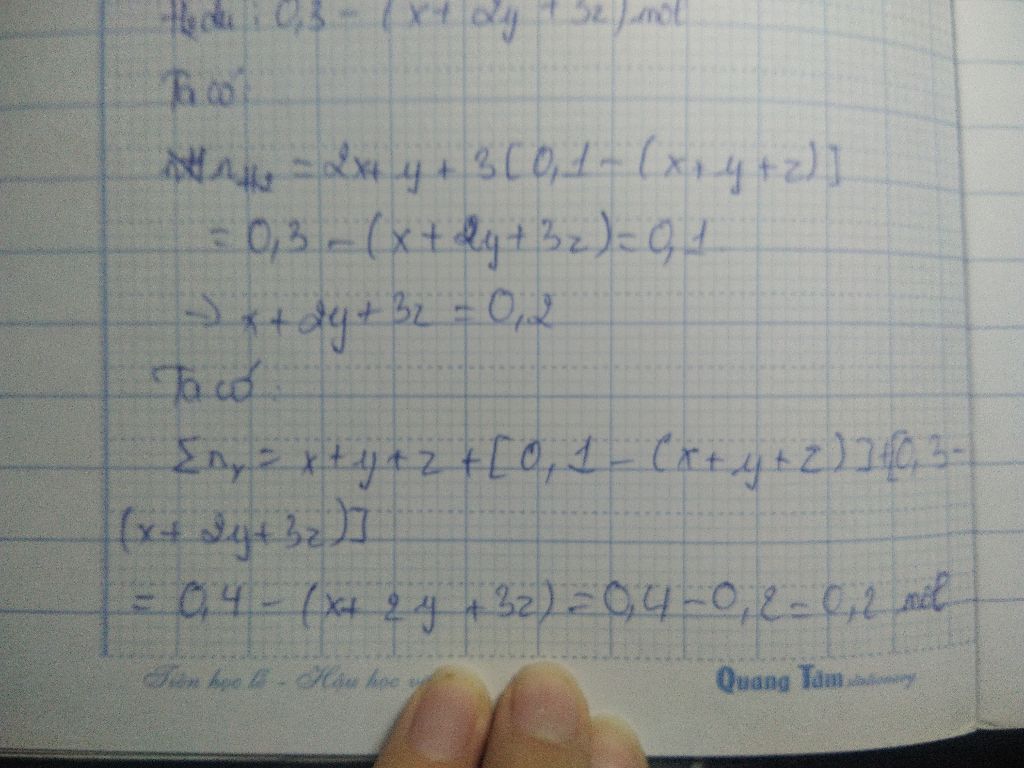 H₂ dư: 0,3 - (x + 2y + 3z) mol
Ta có:
n_H₂ = 2x + y + 3[0,1 - (x + y + z)]
= 0,3 - (x + 2y + 3z) = 0,1
→ x + 2y + 3z = 0,2
Ta có:
Σn_Y = x + y + z + [0,1 - (x + y + z)] + [0,3 -
(x + 2y + 3z)]
= 0,4 - (x + 2y + 3z) = 0,4 - 0,2 = 0,2 mol
Tiên học lễ - Hậu học
Quang Tâm stationery